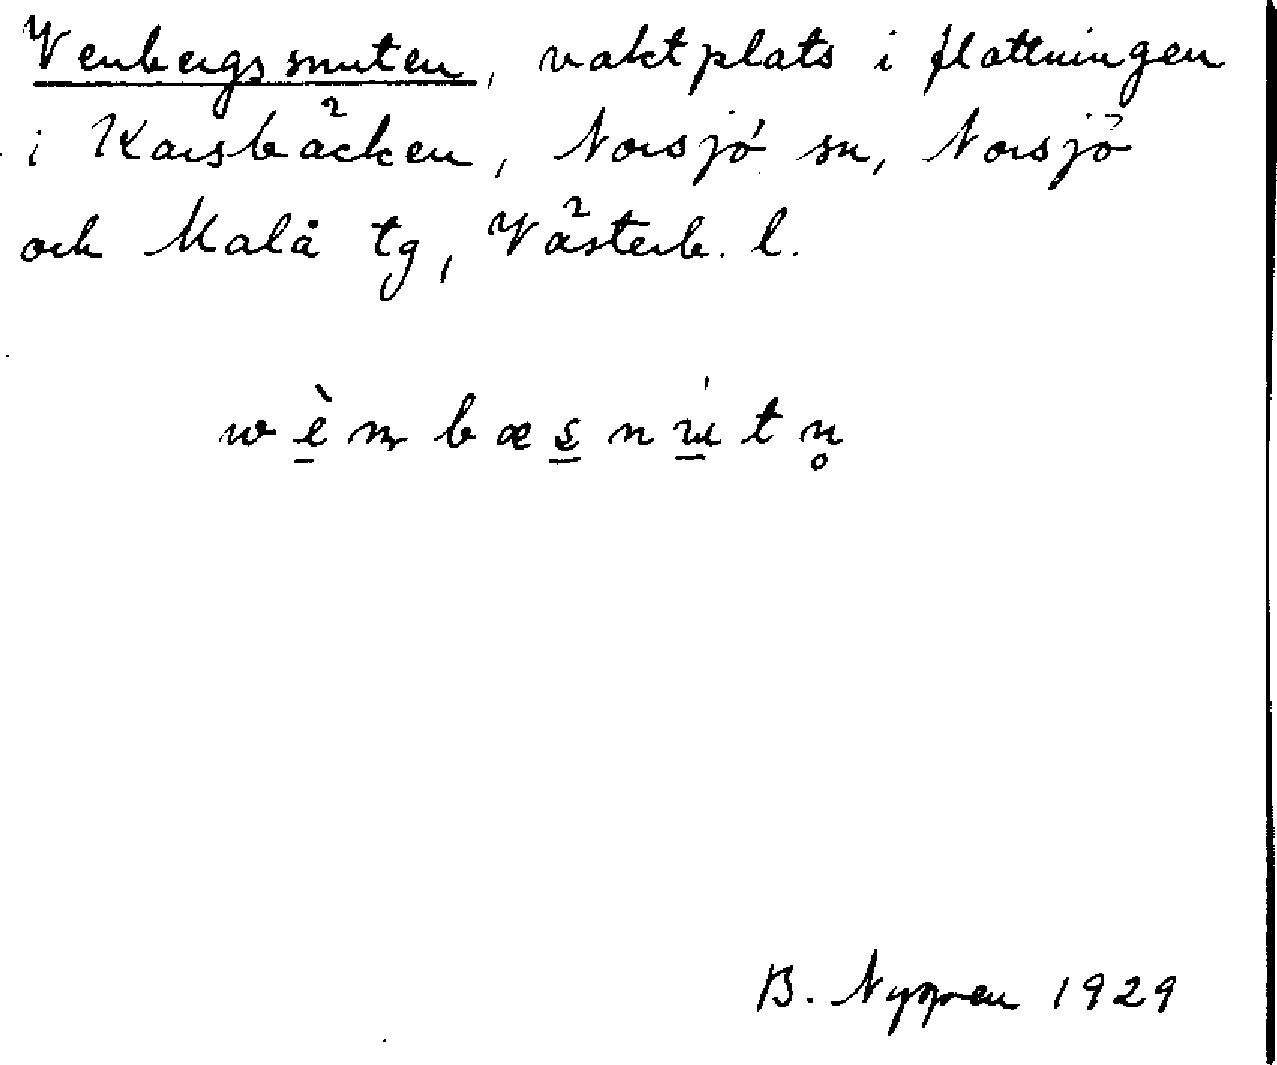 Venbergssnuten, vaktplats i flottningen
i Korsbäcken, Norsjö sn, Norsjö
och Malå tg, Västerb. l.
B. Nygren 1929